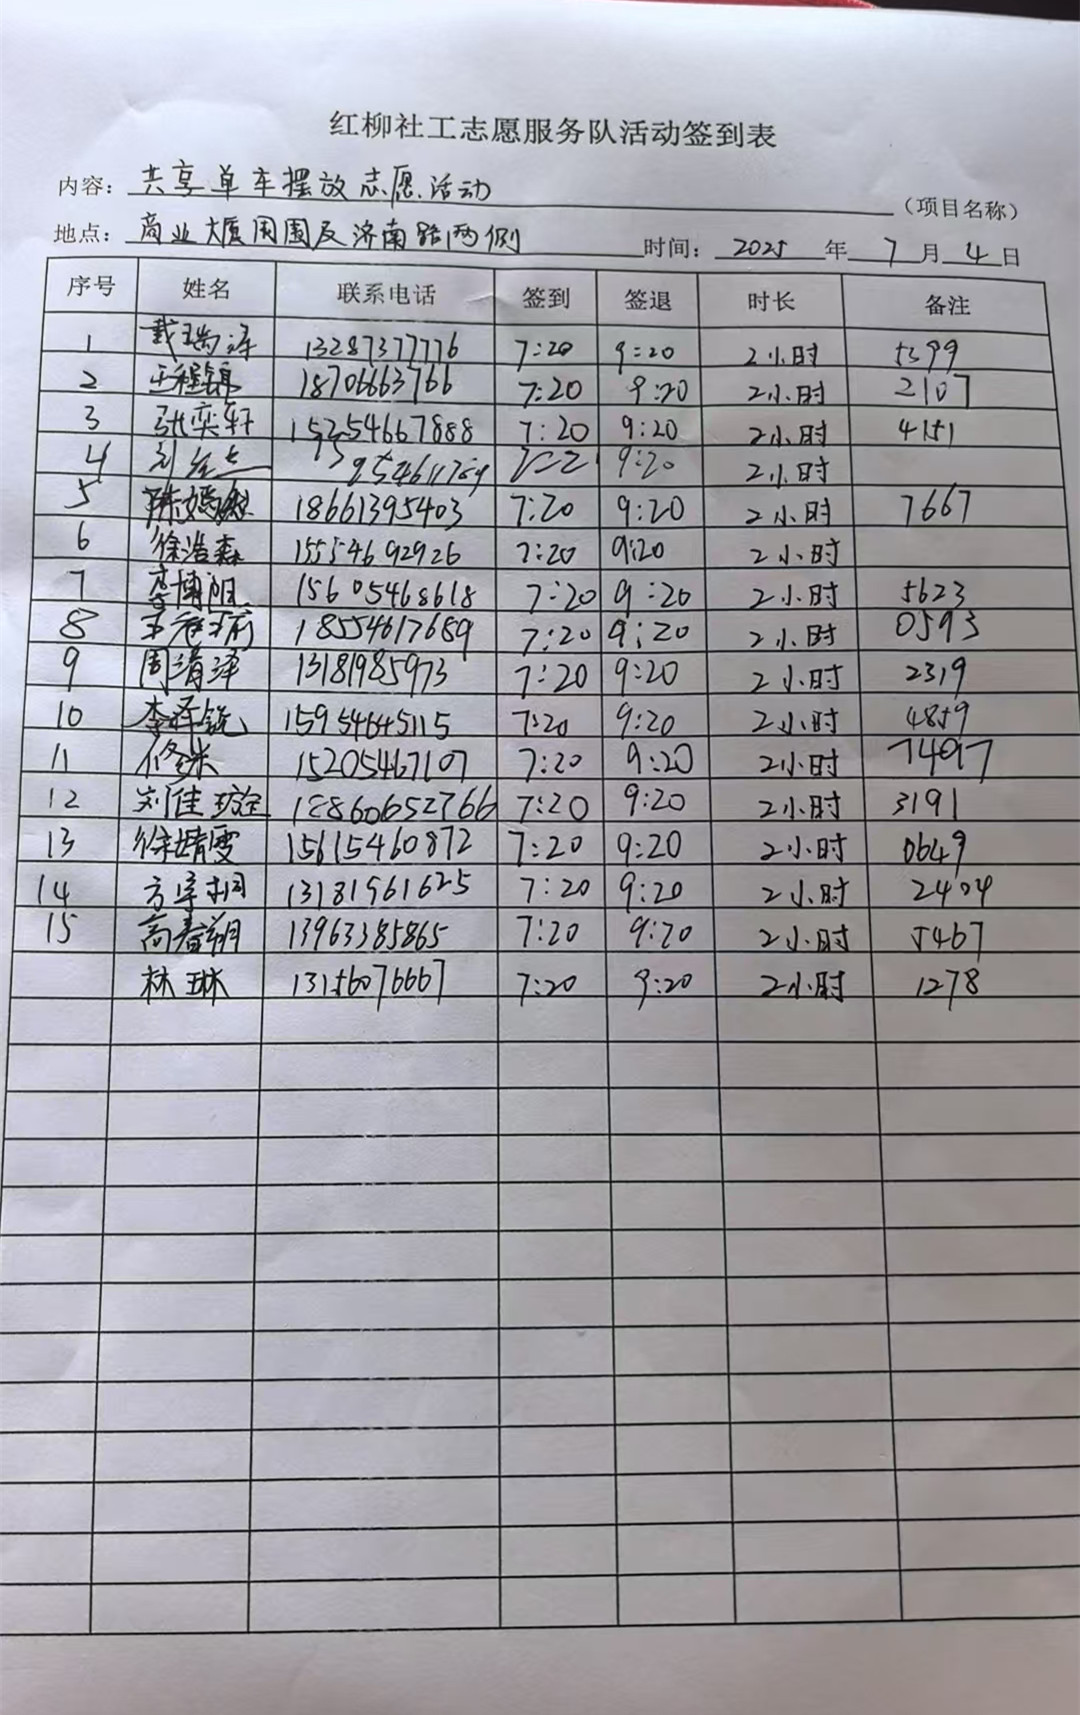 红柳社工志愿服务队活动签到表
内容：共享单车摆放志愿活动（项目名称）
地点：商业大厦周围及济南路两侧 时间：2025年7月4日
序号 姓名 联系电话 签到 签退 时长 备注
1 戴瑞泽 13287377776 7:20 9:20 2小时 5399
2 王程锦 18706663766 7:20 9:20 2小时 2107
3 张奕轩 15254667888 7:20 9:20 2小时 4151
4 刘 9:20 2小时
5 陈嫣 18661395403 7:20 9:20 2小时 7667
6 徐浩森 15554692926 7:20 9:20 2小时
7 李博阳 15605468618 7:20 9:20 2小时 5623
8 王 18554617689 7:20 9:20 2小时 0593
9 周清泽 13181985973 7:20 9:20 2小时 2319
10 李泽锐 15954645115 7:20 9:20 2小时 4859
11 修米 15205467107 7:20 9:20 2小时 7497
12 刘佳璇 18860652766 7:20 9:20 2小时 3191
13 徐婧雯 15615460872 7:20 9:20 2小时 0649
14 方宇桐 13181961625 7:20 9:20 2小时 2404
15 高春翔 13963385865 7:20 9:20 2小时 5467
林琳 13156076667 7:20 9:20 2小时 1278